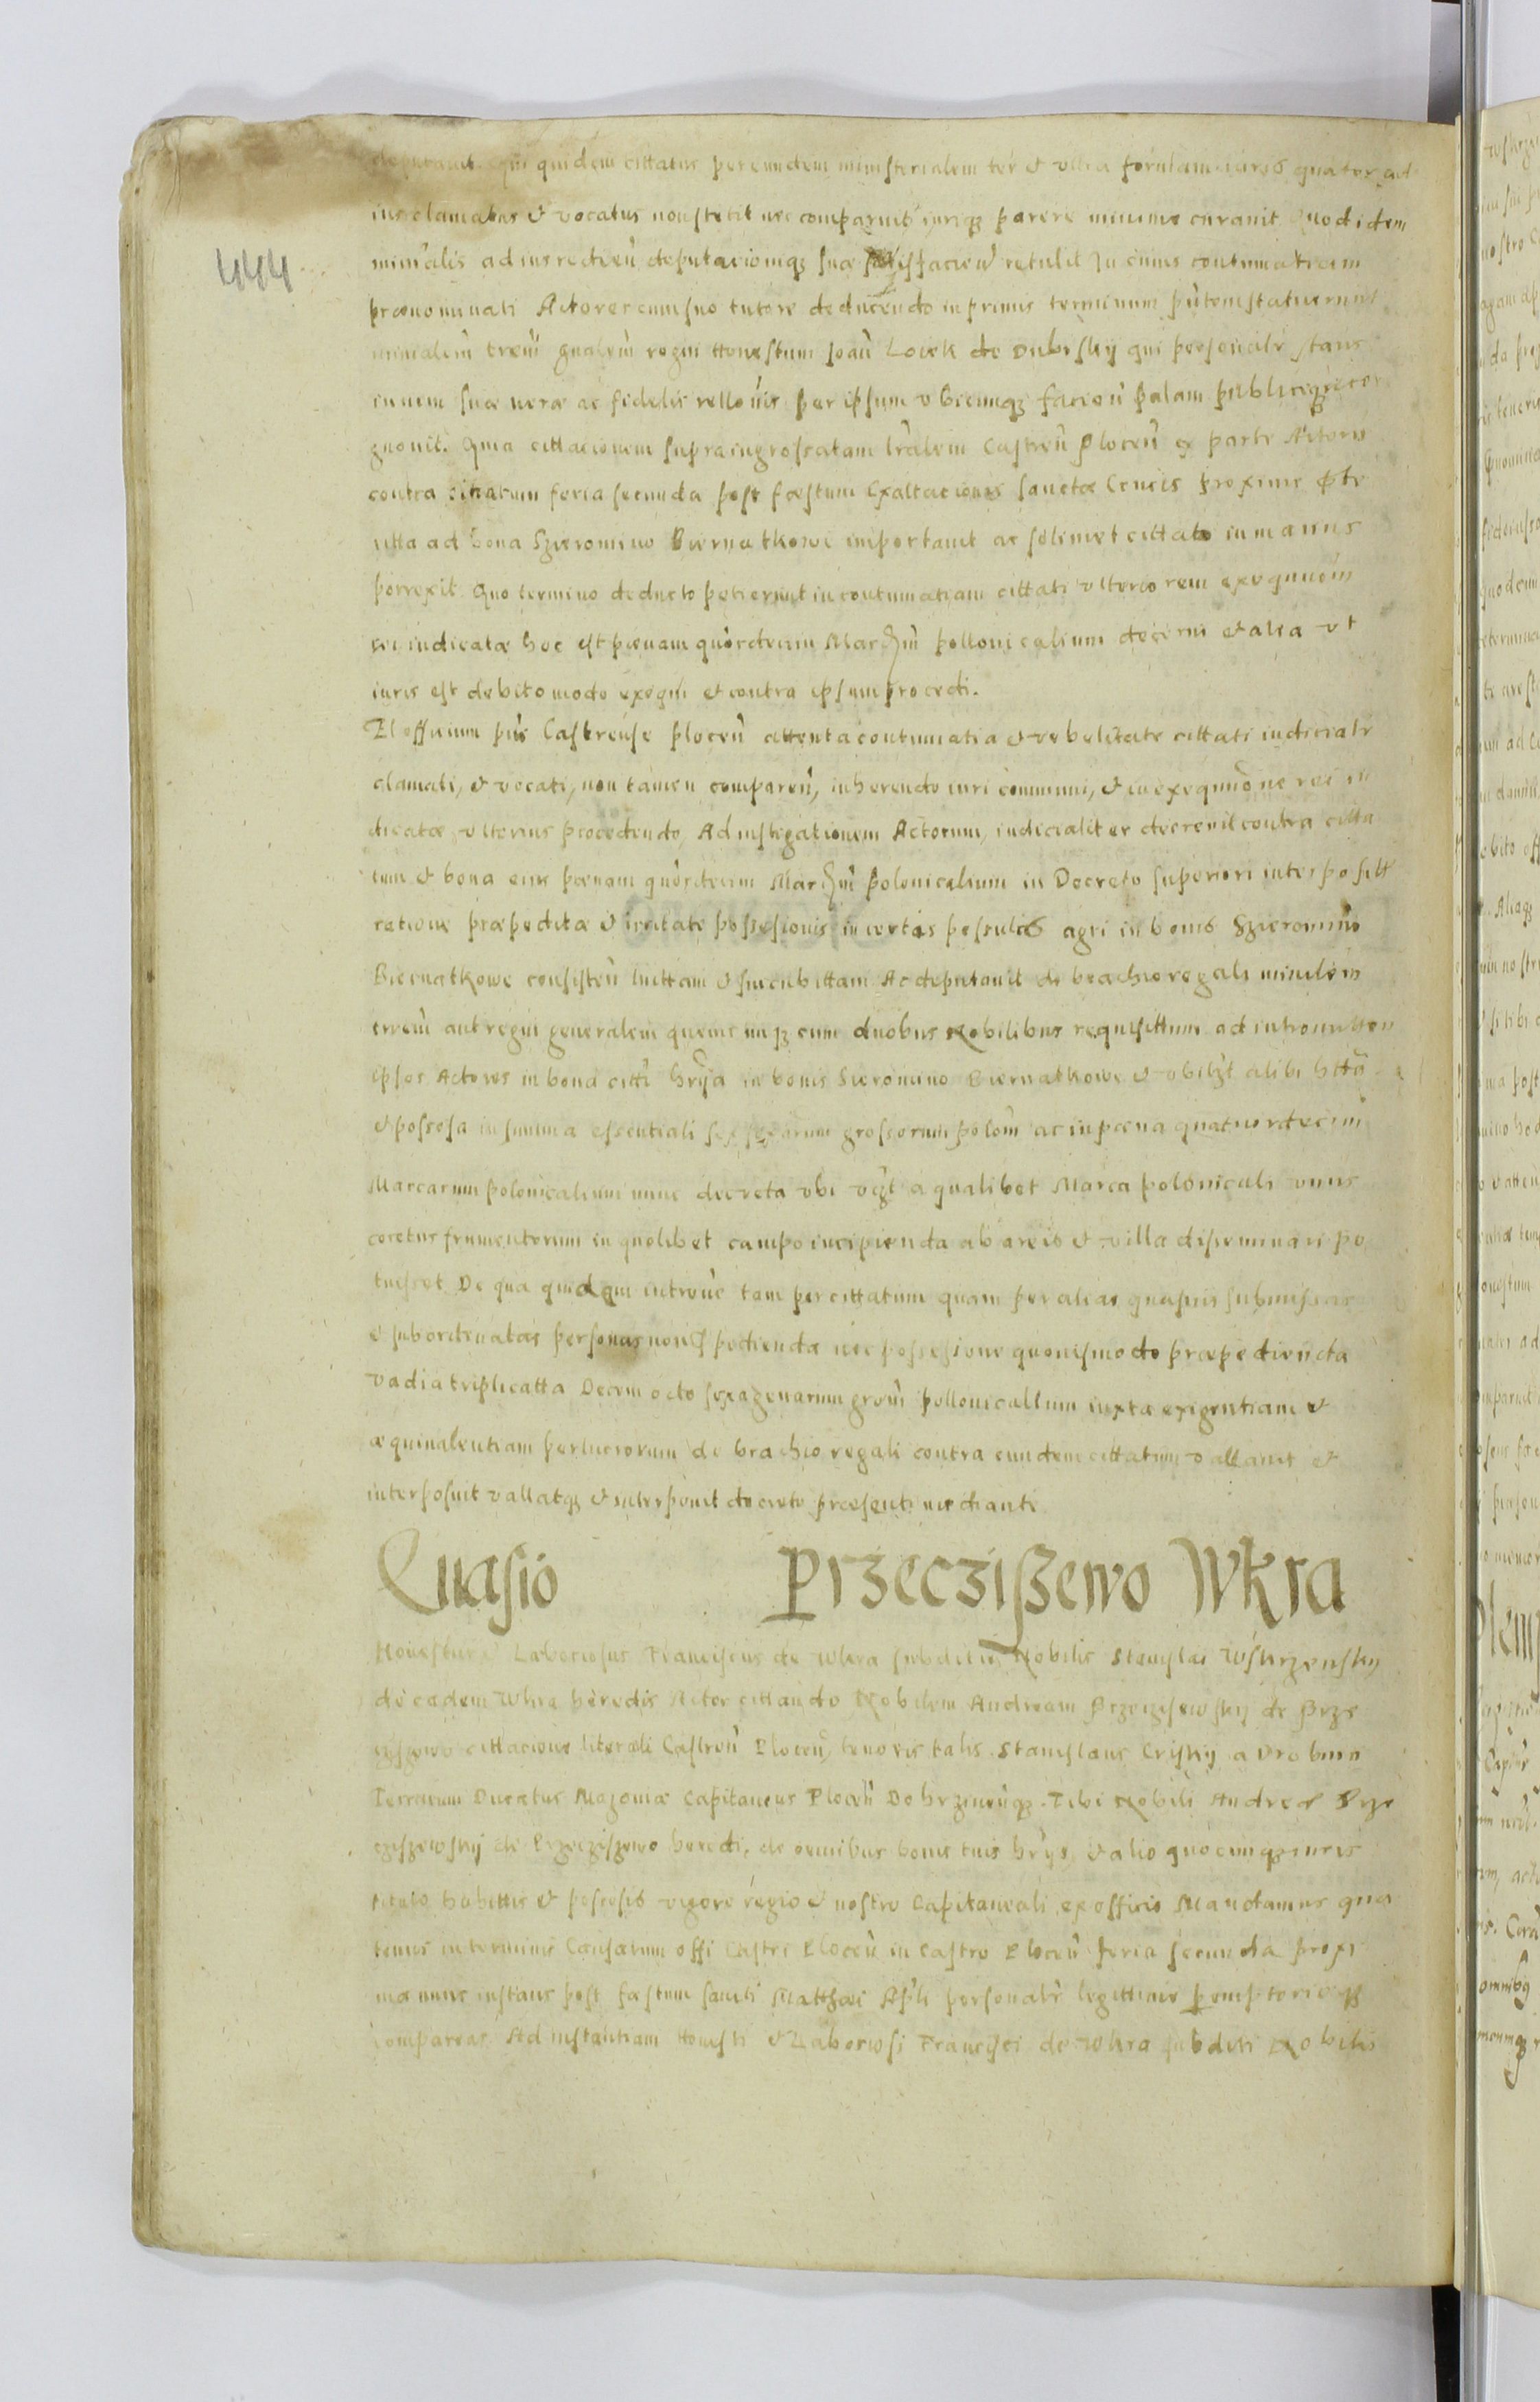 deputavit. Qui quidem cittatus per eundem ministerialem ter et ultra formam iuris quater ad
ius clamatus et vocatus non stetit nec comparuit iuriq3 parere minime curavit Quod idem
minralis ad ius rectieñ deputacioniq3 suæ satisfacien̄ retulit In cuius contumatiam
prænominati Actores cum suo tutore deducendo in primis terminum pñtem statuerunt
minialem treñ gnalem regni Honestum Joañ Locek de Dubesky qui personalr stans
in vim suæ veræ ac fidelis relloñis per ipsum ubicunq3 facien̄ palam publiceq3 recog
gnovit. Quia cittacionem supra ingrossatam lralem Castreñ Ploceñ ex parte Actoris
contra citatum feria secunda post fæstum Exaltacionis sanctæ Crucis proxime pte
ritta ad bona Szieromino Biernatkowe importavit ac solimet cittato in manus
porrexit. Quo termino deducto petierunt in contumatiam cittati ulteriorem exequuoem
rei iudicatæ hoc est pœnam quordecim Marcm pollonicalium decerni et alia ut
iuris est debito modo exequi et contra ipsum procedi.
Et officium pñs Castrense Ploceñ attenta contumatia et rebelitate cittati iudicialr
clamati, et vocati, non tamen compareñ, inherendo iuri communi, et in exequuione rei iu
dicatæ ulterius procedendo, Ad instigationem Actorum, iudicialiter decrevit contra citta
tum et bona eius pœnam quordecim Marcm polonicalium in Decreto superiori interpositt
ratione præpeditæ et irritatæ possesionis in certis pesulis agri in bonis Szieromino
Biernatkowe consisteñ luittam et sucubittam Ac deputavit de brachio regali minilem
treñ aut regni generalem quemcunq3 cum duobus Nobilibus requisittum ad intromitten
ipsos Actores in bona citti hrya in bonis Sieromino Biernatkowe et ubilzt alibi hitta
et possesa in summa essentiali sex sexarum grossorum polom ac in pœna quatuordecim
Marcarum polonicalium nunc decreta ubi vczt a qualibet Marca polonicali unus
coretus frumentorum in quolibet campo incipienda ab areis et villa diseminari po
tuisset De qua quidem introñe tam per cittatum quam per alias quasvis submissas
et subordinatas personas non pedienda nec possesione quovismodo præpedienda
vadia triplicatta Decem octo sexagenarum grom pollonicallium iuxta exigentiam et
æquivalentiam perlucrorum de brachio regali contra eundem cittatum vallavit et
interposuit vallatq3 et interponit decreto præsenti mediante
Quasio Przecziszewo Wkra
Honestus et Laboriosus Franciscus de Wkra subditus Nobilis Stanislai Wskrzensky
de eadem Wkra heredis Actor cittando Nobilem Andream Przeczisewsky de Prze
cziszewo cittacione literali Castreñ Ploceñ, tenoris talis. Stanislaus Crisky a Drobnin
Terrarum Ducatus Mazoviæ Capitaneus Ploceñ Dobrzineñq3. Tibi Nobili Andreæ Prze
cziszewsky de Przecziszewo heredi, de omnibus bonis tuis hrys, et alio quocunq3 iuris
titulo habittis et possesis vigore regio et nostro Capitaneali ex officio Mandamus qua
tenus in terminis Causarum offi Castri Ploceñ in Castro Ploceñ feria secunda proxi
ma nunc instans post fæstum sancti Matthæi Apli personalr legittime peremptorieq3
compareas. Ad instantiam Honesti et Laboriosi Francisci de Wkra subditi Nobilis
444